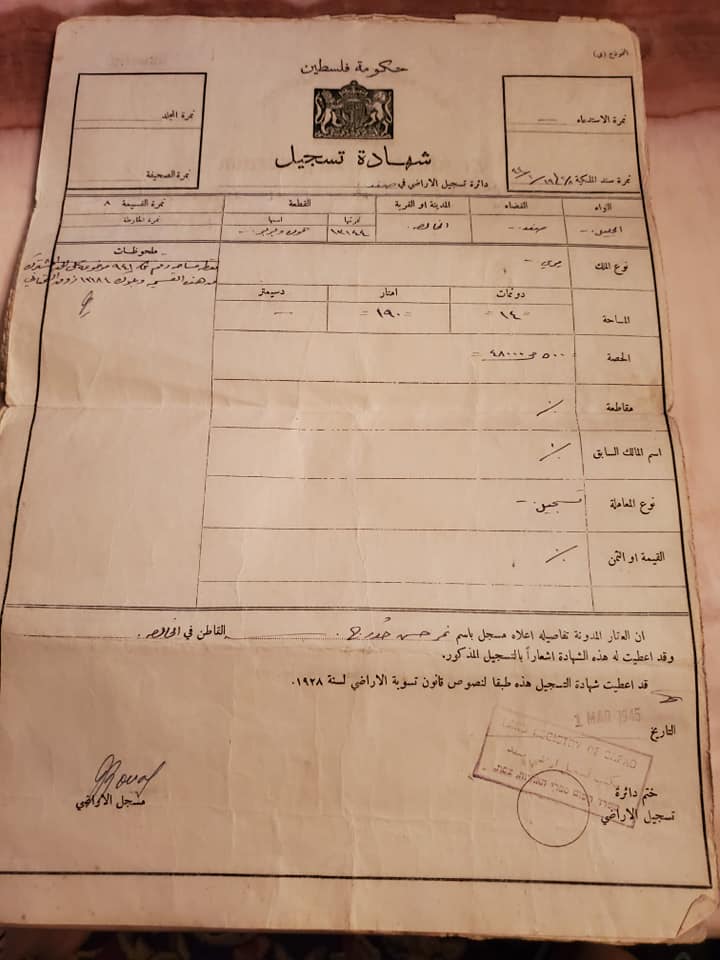 النموذج (ى)
حكومة فلسطين
نمرة الجلد
نمرة الاستدعاء —
شهادة تسجيل
نمرة الصحيفة
دائرة تسجيل الاراضي في صفد
نمرة سند الملكية
اللواء القضاء المدينة او القرية القطعة نمرة القسيمة ٨
نمرتها اسمها نمرة الخارطة
الجليل صفد الخالصه ١٣١٤٤
ملحوظات
نوع الملك ميري
دونمات امتار دسيمتر
المساحة ١٤ ١٩٠ —
الحصة ٥٠٠ من ٤٨٠٠٠
مقاطعة
اسم المالك السابق
نوع المعاملة تسجيل
القيمة او الثمن
ان العقار المدونة تفاصيله اعلاه مسجل باسم نمر حسن القاطن في الخالصه.
وقد اعطيت له هذه الشهادة اشعاراً بالتسجيل المذكور.
قد اعطيت شهادة التسجيل هذه طبقا لنصوص قانون تسوية الاراضي لسنة ١٩٢٨.
التاريخ 1 MAR 1945
LAND REGISTRY OF SAFAD
ختم دائرة
تسجيل الاراضي
مسجل الاراضي